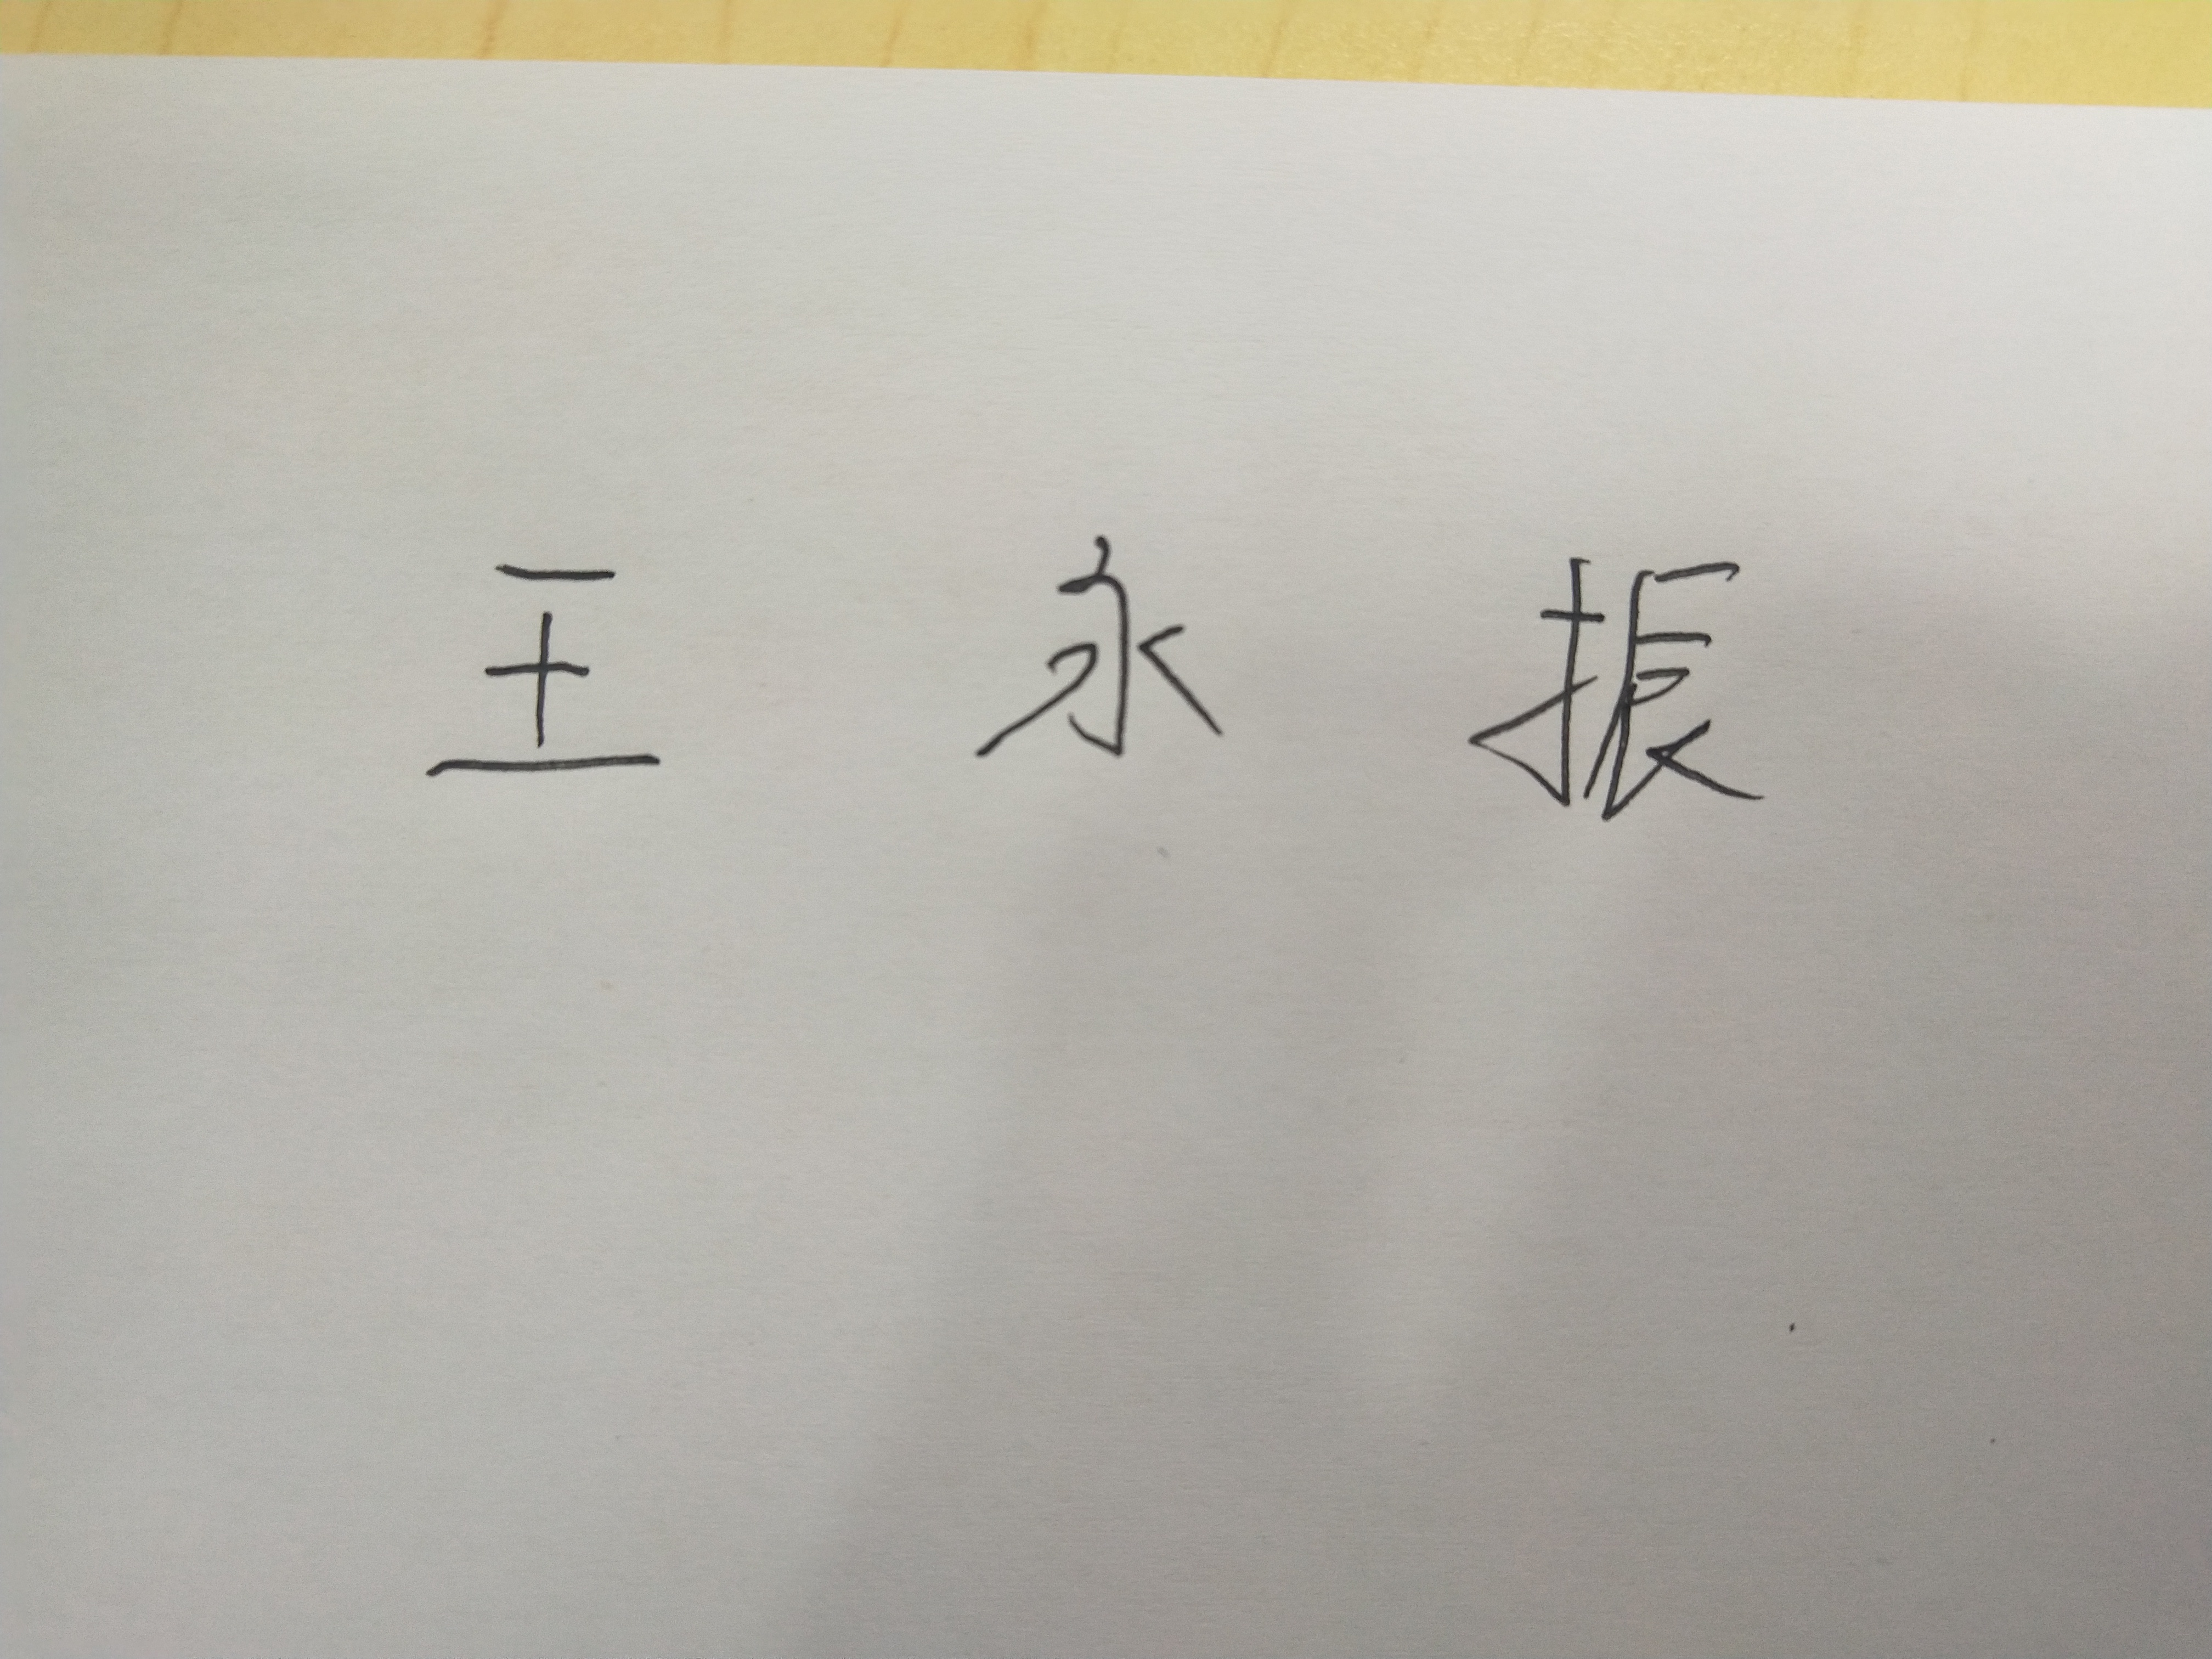 王永振